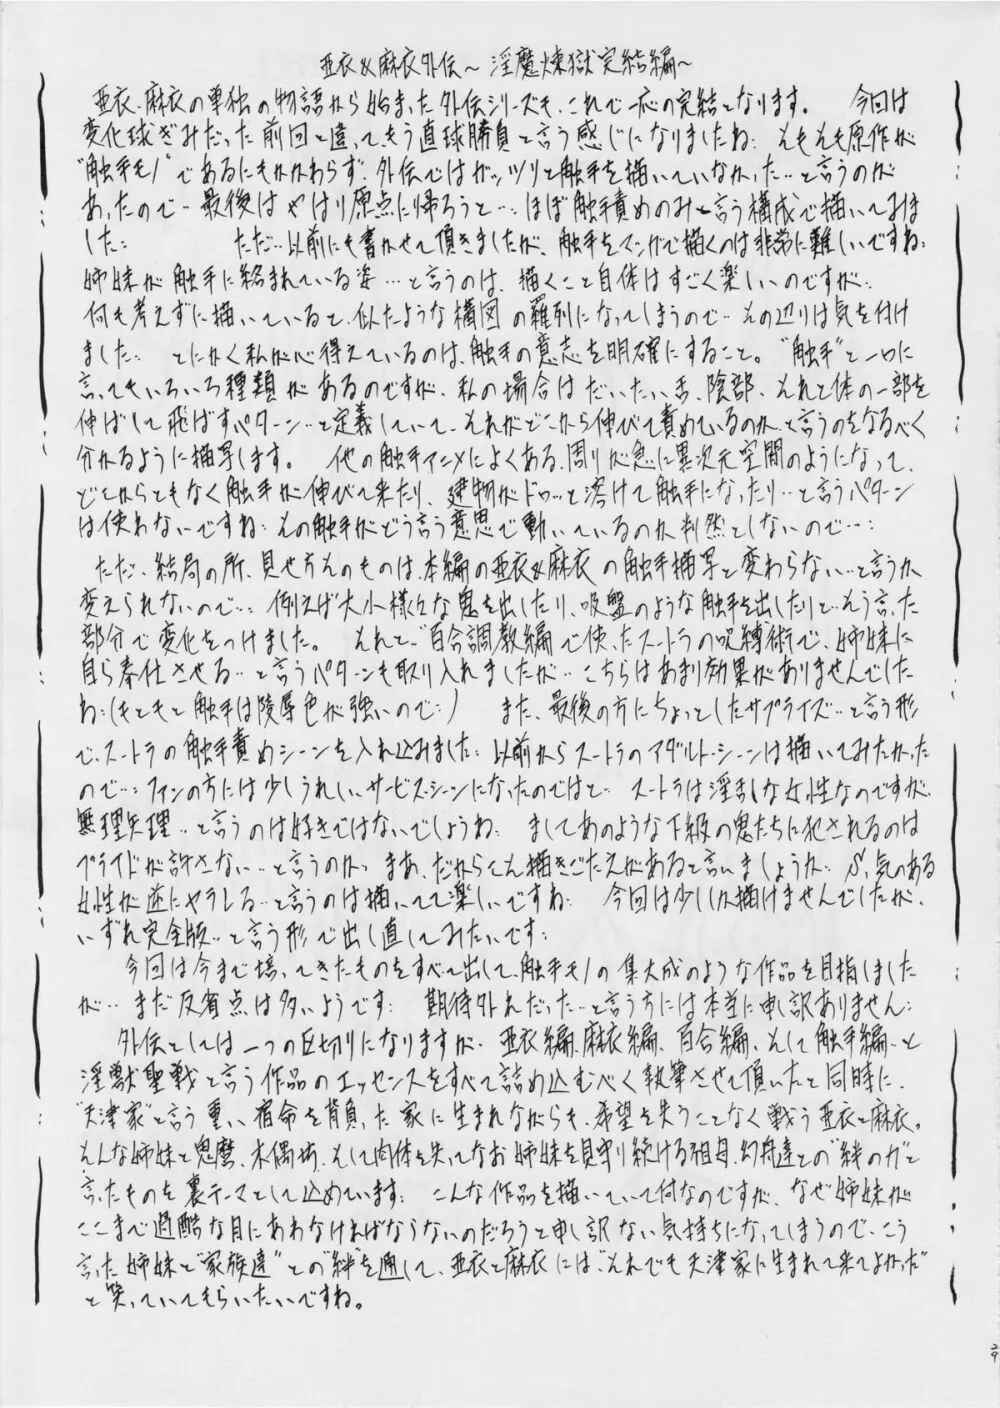 亜衣&麻衣外伝～淫魔煉獄完結編～
亜衣、麻衣の単独の物語から始まった外伝シリーズも、これで一応の完結となります。 今回は
変化球ぎみだった前回と違ってもう直球勝負と言う感じになりましたね… そもそも原作が
"触手モノ"であるにもかかわらず、外伝ではガッツリと触手を描いていなかった…と言うのが
あったので…最後はやはり原点に帰ろうと…ほぼ触手責めのみと言う構成で描いてみま
した… ただ…以前にも書かせて頂きましたが、触手をマンガで描くのは非常に難しいですね…
姉妹が触手に絡まれている姿…と言うのは、描くこと自体はすごく楽しいのですが…
何も考えずに描いていると、似たような構図の羅列になってしまうので…その辺りは気を付け
ました… とにかく私が心得ているのは、触手の意志を明確にすること。"触手"と一口に
言ってもいろいろ種類があるのですが、私の場合はだいたい舌、陰部、それと体の一部を
伸ばして飛ばすパターン…と定義していて、それがどこから伸びて責めているのか、と言うのをなるべく
分かるように描写します。 他の触手アニメによくある、周りが急に異次元空間のようになって、
どこからともなく触手が伸びて来たり、建物がドロッと溶けて触手になったり…と言うパターン
は使わないですね…その触手がどう言う意思で動いているのか判然としないので…
ただ、結局の所、見せ方そのものは、本編の亜衣&麻衣の触手描写と変わらない…と言うか
変えられないので… 例えば大小様々な鬼を出したり、吸盤のような触手を出したりと…そう言った
部分で変化をつけました。 それと、"百合調教編"で使ったスートラの呪縛術で、姉妹に
自ら奉仕させる…と言うパターンも取り入れましたが…こちらはあまり効果がありませんでした
ね…(もともと触手は陵辱色が強いので…) また、最後の方にちょっとしたサプライズ…と言う形
で、スートラの触手責めシーンを入れ込みました… 以前からスートラのアダルトシーンは描いてみたかった
ので… ファンの方には少しうれしいサービスシーンになったのではと… スートラは淫乱な女性なのですが、
無理矢理…と言うのは好きではないでしょうね… ましてあのような下級の鬼たちに犯されるのは
プライドが許さない…と言うのか… まあ、だからこそ描きごたえがあると言いましょうか… S気のある
女性が逆にヤラレる…と言うのは描いてて楽しいですね… 今回は少ししか描けませんでしたが、
いずれ完全版…と言う形で出し直してみたいです…
今回は今まで培ってきたものをすべて出して、触手モノの集大成のような作品を目指しました
が…まだ反省点は多いようです… 期待外れだった…と言う方には本当に申し訳ありません…
外伝としては一つの区切りになりますが、亜衣編、麻衣編、百合編、そして触手編…と
淫獣聖戦と言う作品のエッセンスをすべて詰め込むべく執筆させて頂いたと同時に、
"天津家"と言う重い宿命を背負った家に生まれながらも、希望を失うことなく戦う亜衣と麻衣。
そんな姉妹と鬼麿、木偶坊、そして肉体を失ってなお姉妹を見守り続ける祖母、幻舟達との"絆の力"と
言ったものを裏テーマとして込めています… こんな作品を描いていて何なのですが、なぜ姉妹が
ここまで過酷な目にあわなければならないのだろうと申し訳ない気持ちになってしまうので、こう
言った姉妹と"家族達"との"絆"を通して、亜衣と麻衣には、"それでも天津家に生まれて来てよかった"
と笑っていてもらいたいですね。
29